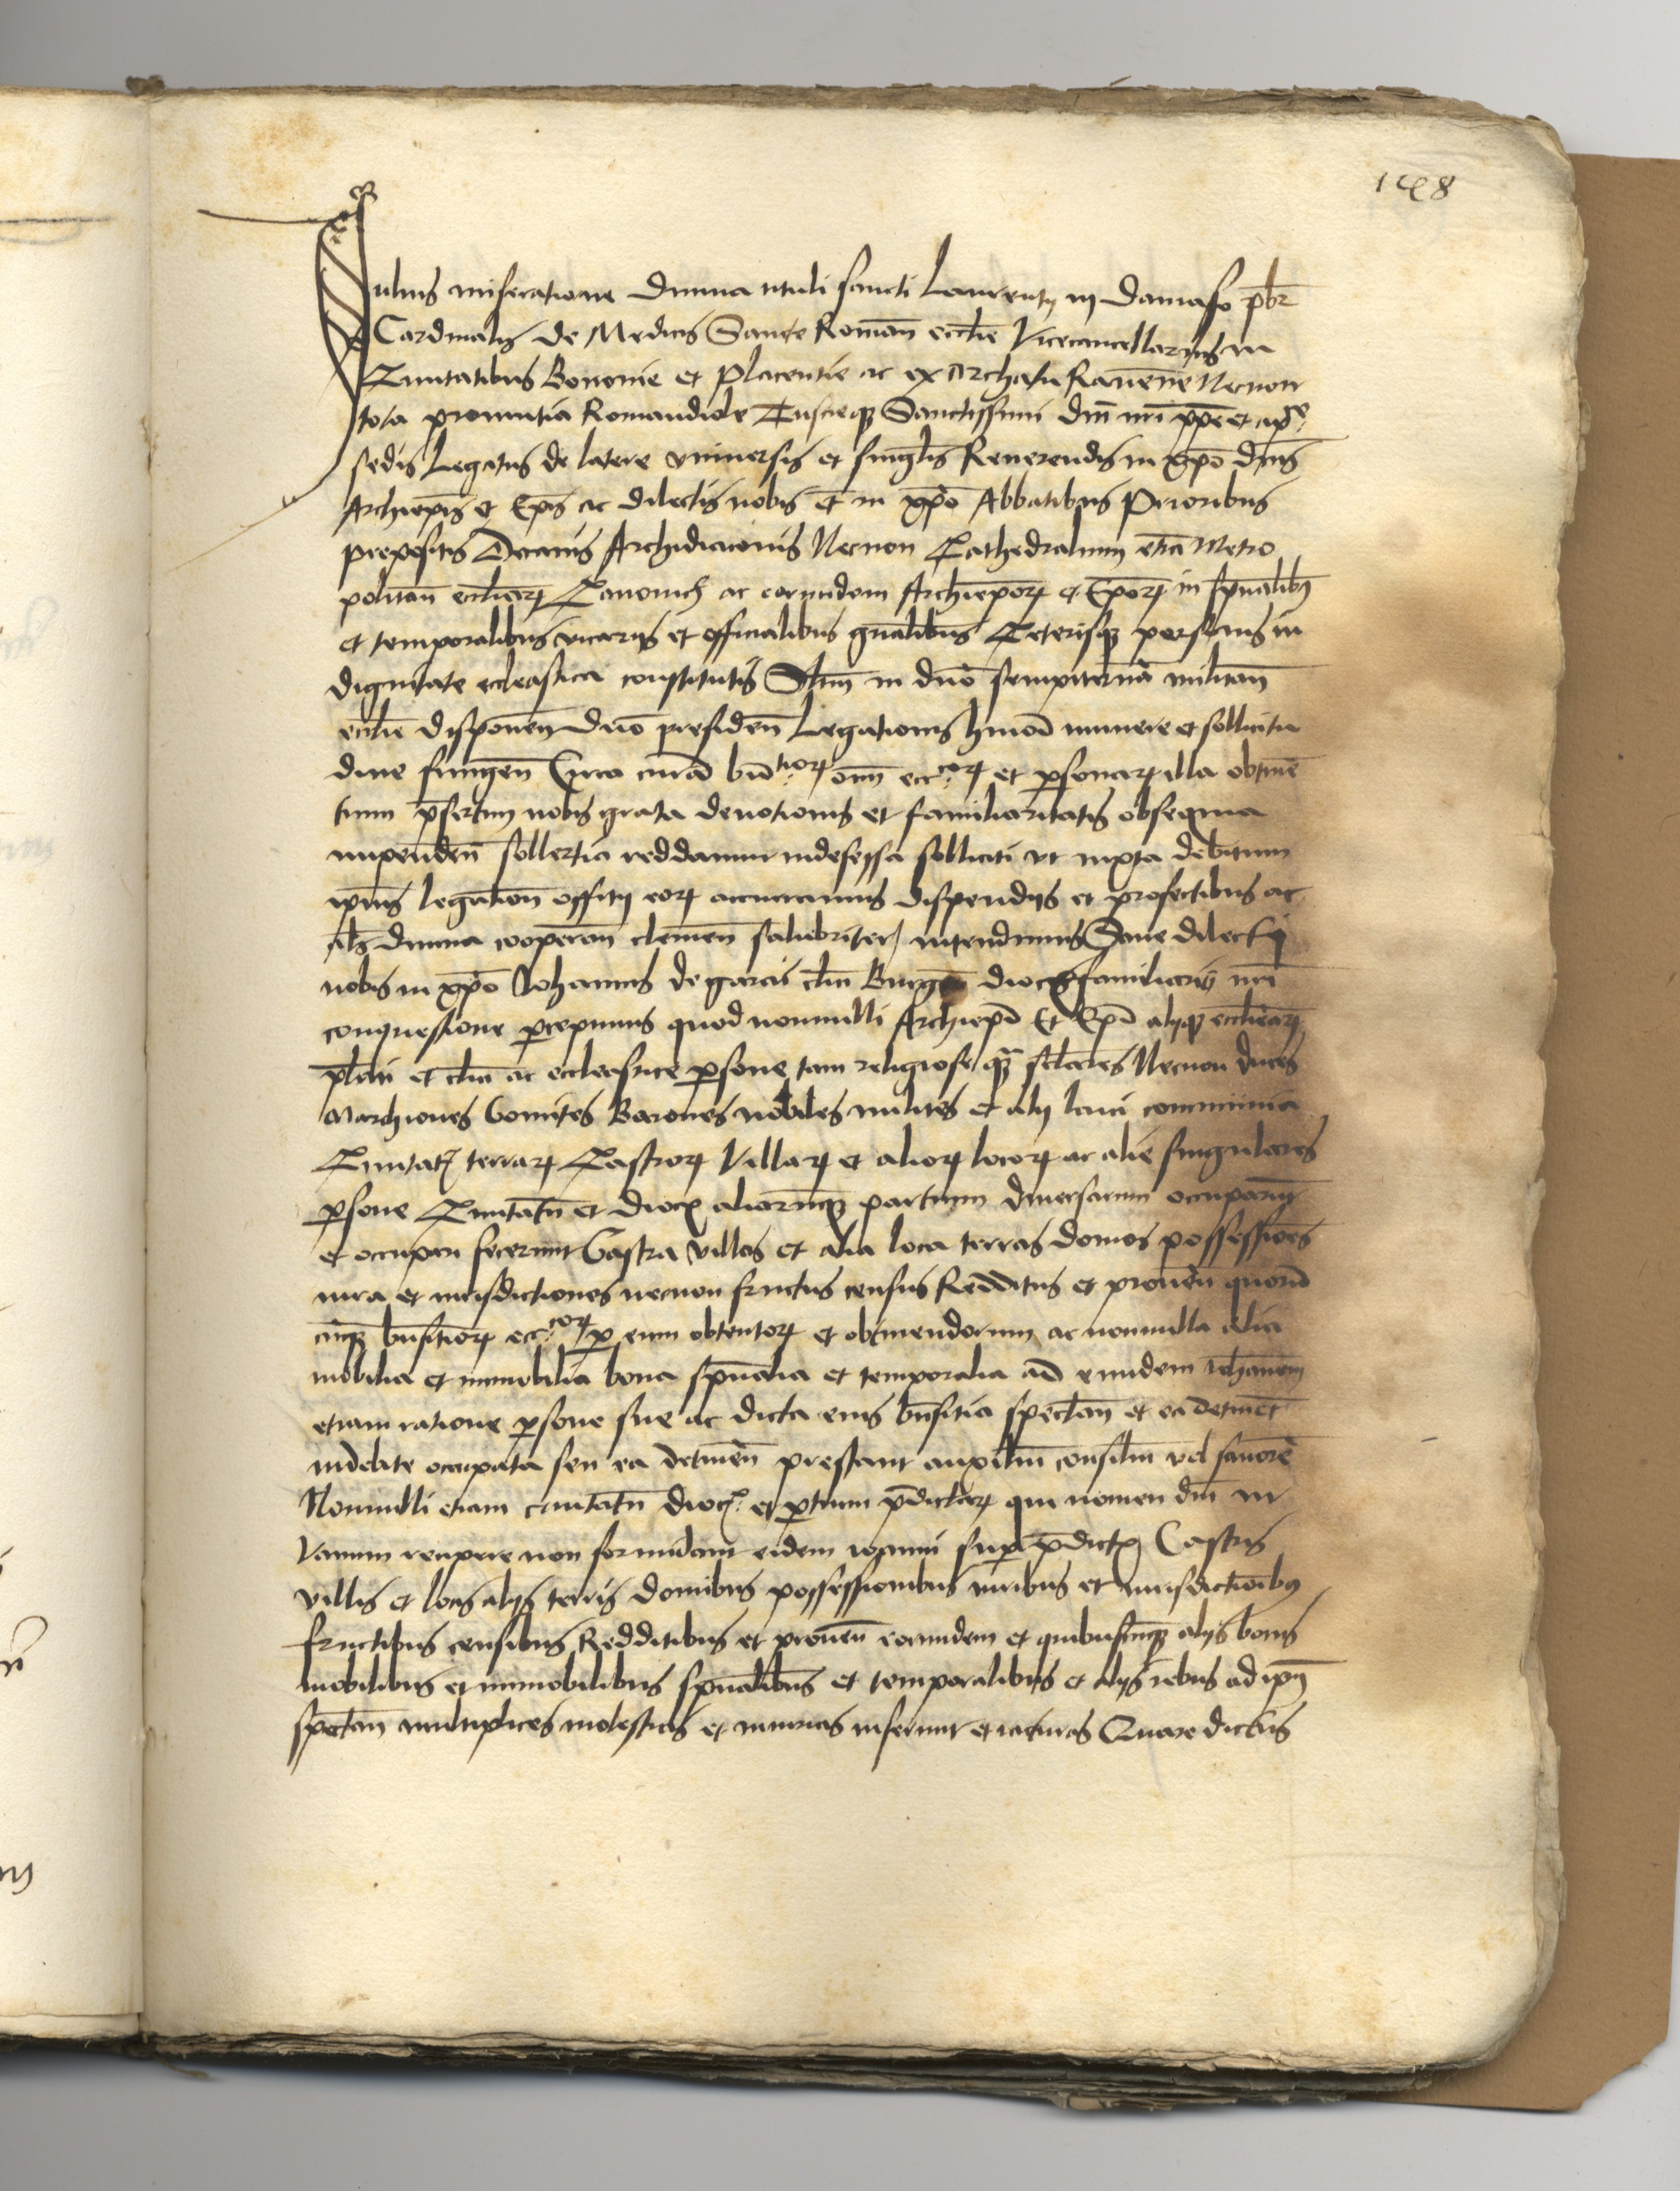 148
Iulius miseratione diuina tituli sancti Laurentij in Damaso pb̄r
Cardinalis de Medicis Sancte Romañ eccl̄ie Vicecancellarius in
Ciuitatibus Bononie et Placentie ac exArchatu Rauēne Necnon
tota prouintia Romandiole Tuscieq̨ Sanctissimi dn̄i nr̄i pp̄e et apᶜᵉ
sedis Legatus de latere vniuersis et singl̄is Reuerendis in xp̄o dn̄is
Archiep̄is et Ep̄is ac dilectis nobis et in xp̄o Abbatibus Prioribus
prepositis Decanis Archidiaconis Necnon Cathedralium etiā Metro
politañ eccl̄iaꝝ Canonicis ac eorundem Archiepōꝝ et Epōꝝ in spūalibꝫ
et temporalibus vicarijs et officialibus gn̄alibus Ceterisq̨ personis in
dignitate ecclesiastica constitutis Sal̄tm in dn̄o sempiternā militañ
eccl̄ie disponeñ dn̄o presideñ Legationis hm̄oi munere et sollicitu
dine fungeñ Circa curā bn̄tioꝝ om̄ eccᶜᵒꝝ et p̱sonaꝝ illa obtinē
tium p̄sertim nobis grata deuotionis et familiaritatis obsequia
impendeñ sollertia reddimur indefessa solliciti vt iuxta debitum
ip̄ius legationis offitij eoꝝ occurramus dispendijs et profectibus ac
al̄s diuina cooperañ clemeñ salubriter intendimus Sane dilecti
nobis in xp̄o Iohannis de garcis cl̄ici dioc familiaris nr̄i
conquestione p̱cepimus quod nonnulli Archiep̄i Et Ep̄i alijq̨ eccl̄iaꝝ
p̄lati et cl̄ici ac ecclesiastice p̱sone tam religiose q̨̄ sc̄lares Necnon duces
Marchiones Comites Barones nobiles milites et alij laici communia
Ciuitatꝫ terraꝝ Castroꝝ Villaꝝ et alioꝝ locoꝝ ac alie singulares
p̱sone Ciuitatū et dioc aliarūq̨ partium diuersarum occuparūt
et occupari fecerunt Castra villas et alia loca terras domos possessiones
iura et iurisdictiones necnon fructus census Redditus et proueñ quorū
cūq̨ bn̄fitioꝝ eccᶜᵒꝝ p̱ eum obtentoꝝ et obtinendorum ac nonnulla alia
mobilia et immobilia bona spūalia et temporalia ad eundem Ioh̄anem
etiam ratione p̱sone sue ac dicta eius bn̄fitia spectañ et ea detinēt
indebite occupata seu ea detineñ prestant auxiliū consiliū vel fauorē
Nonnulli etiam ciuitatū dioc et p̱tium p̄dictaꝝ qui nomen dn̄i in
vanum recipere non formidant eidem ioanni sup̱ p̄dictis Castris
villis et locis alijs terris domibus possessionibus iuribus et iurisdictionibꝫ
fructibus censibus Redditibus et proueñ eorundem et quibuscūq̨ alijs bonis
mobilibus et immobilibus spūalibus et temporalibus et alijs rebus ad ip̄m
spectañ multiplices molestias et iniurias inferunt et iacturas Quare dictus